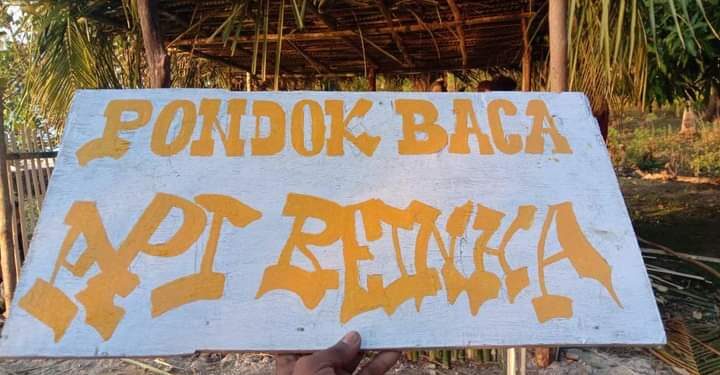 PONDOK BACA
API REINHA